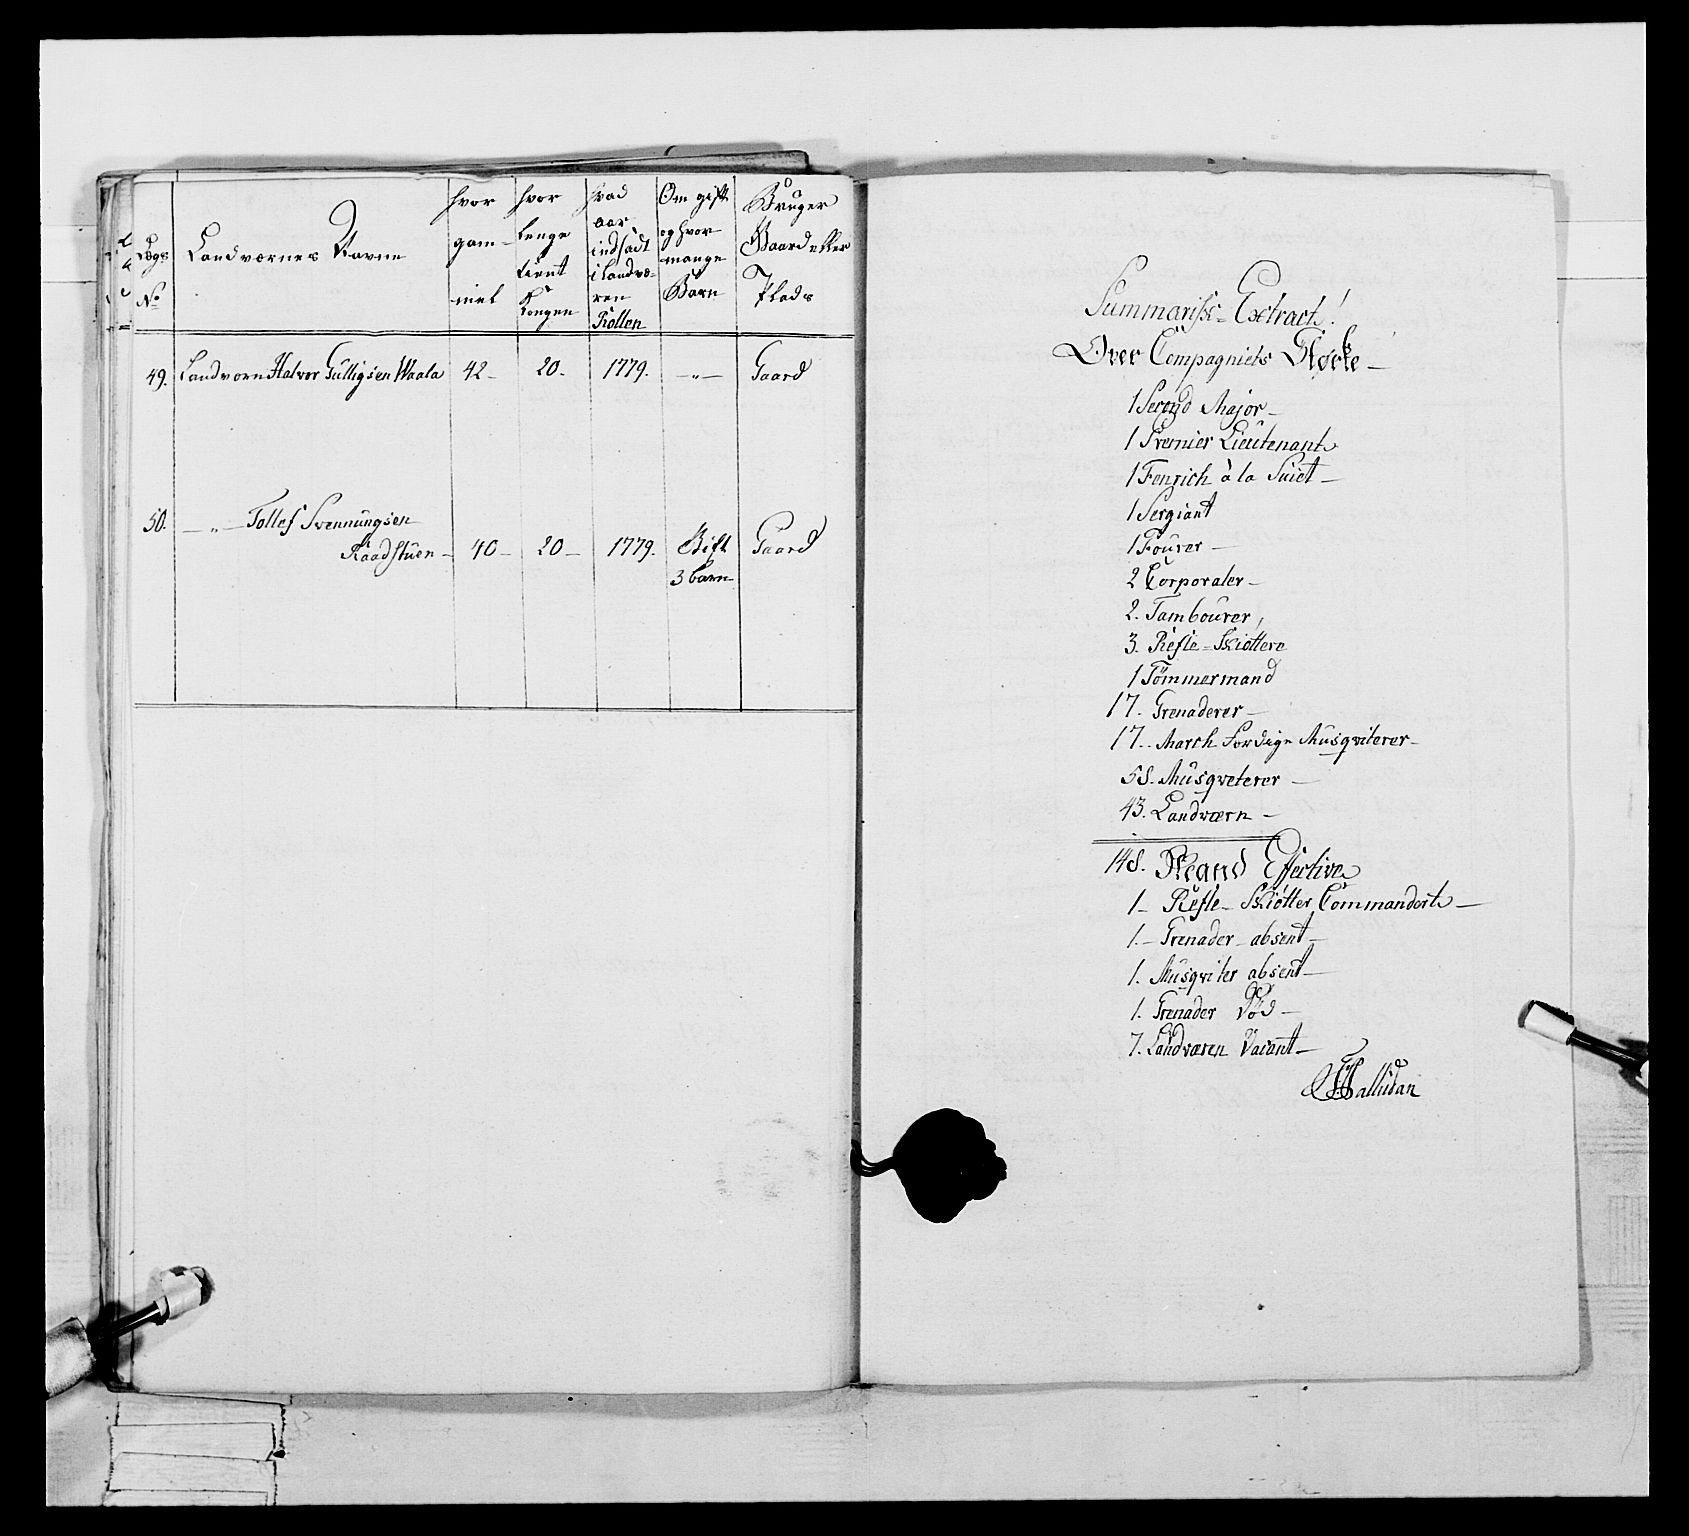 Lægs
No
Landværnes Navne
hvor
gam-
mel
hvor
lenge
tient
Kongen
hvad
aar
indsadt
i Landvæ-
ren
Rollen
Om gift
og hvor
mange
Barn
Bruger
Gaard eller
Plads
49. Landværn Halvor Gulligsen Waala 42- 20- 1779. -"- Gaard
50. -"- Tollef Svennungsen
Raadstuen - 40- 20- 1779. Gift Gaard
3 barn
Summarisk-Extract!
Over Compagniets Störke-
1 Second Major-
1 Premier Lieutenant
1 Fenrich à la Suiet-
1 Sergiant
1 Fourer-
2 Corporaler-
2. Tambourer,
3. Riefle-Skiöttere
1 Tömmermand
17. Grenaderer-
17.. March Færdige Musqviterer-
58. Musqveterer-
43. Landværn-
148. Mand Effective
1- Riefle-Skiötter Commandert-
1.- Grenader- absent-
1. Musqviter absent-
1. Grenader Död-
7. Landværen Vacant-
Palludan